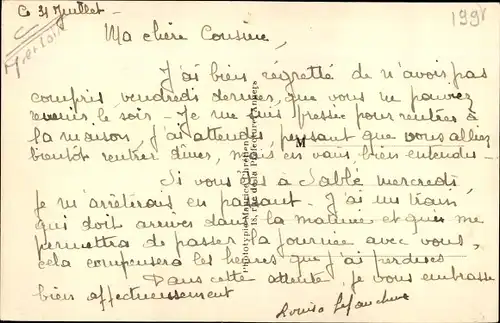 Ce 31 Juillet -
1991
Ma chère Cousine,
J'ai bien regretté de n'avoir pas
compris vendredi dernier, que vous ne pouviez
revenir le soir - Je me suis pressée pour rentrer à
la maison, j'ai attendu, pensant que vous alliez
bientôt rentrer dîner, mais en vain bien entendu -
M
Si vous êtes à Sablé mercredi,
je m'arrêterais en passant. J'ai un train
qui doit arriver dans la matinée et qui me
permettra de passer la journée avec vous,
cela compensera les heures que j'ai perdues
Dans cette attente, je vous embrasse
bien affectueusement
Louise
Phototypie Maurice Chrétien
18, rue de la Préfecture, Angers